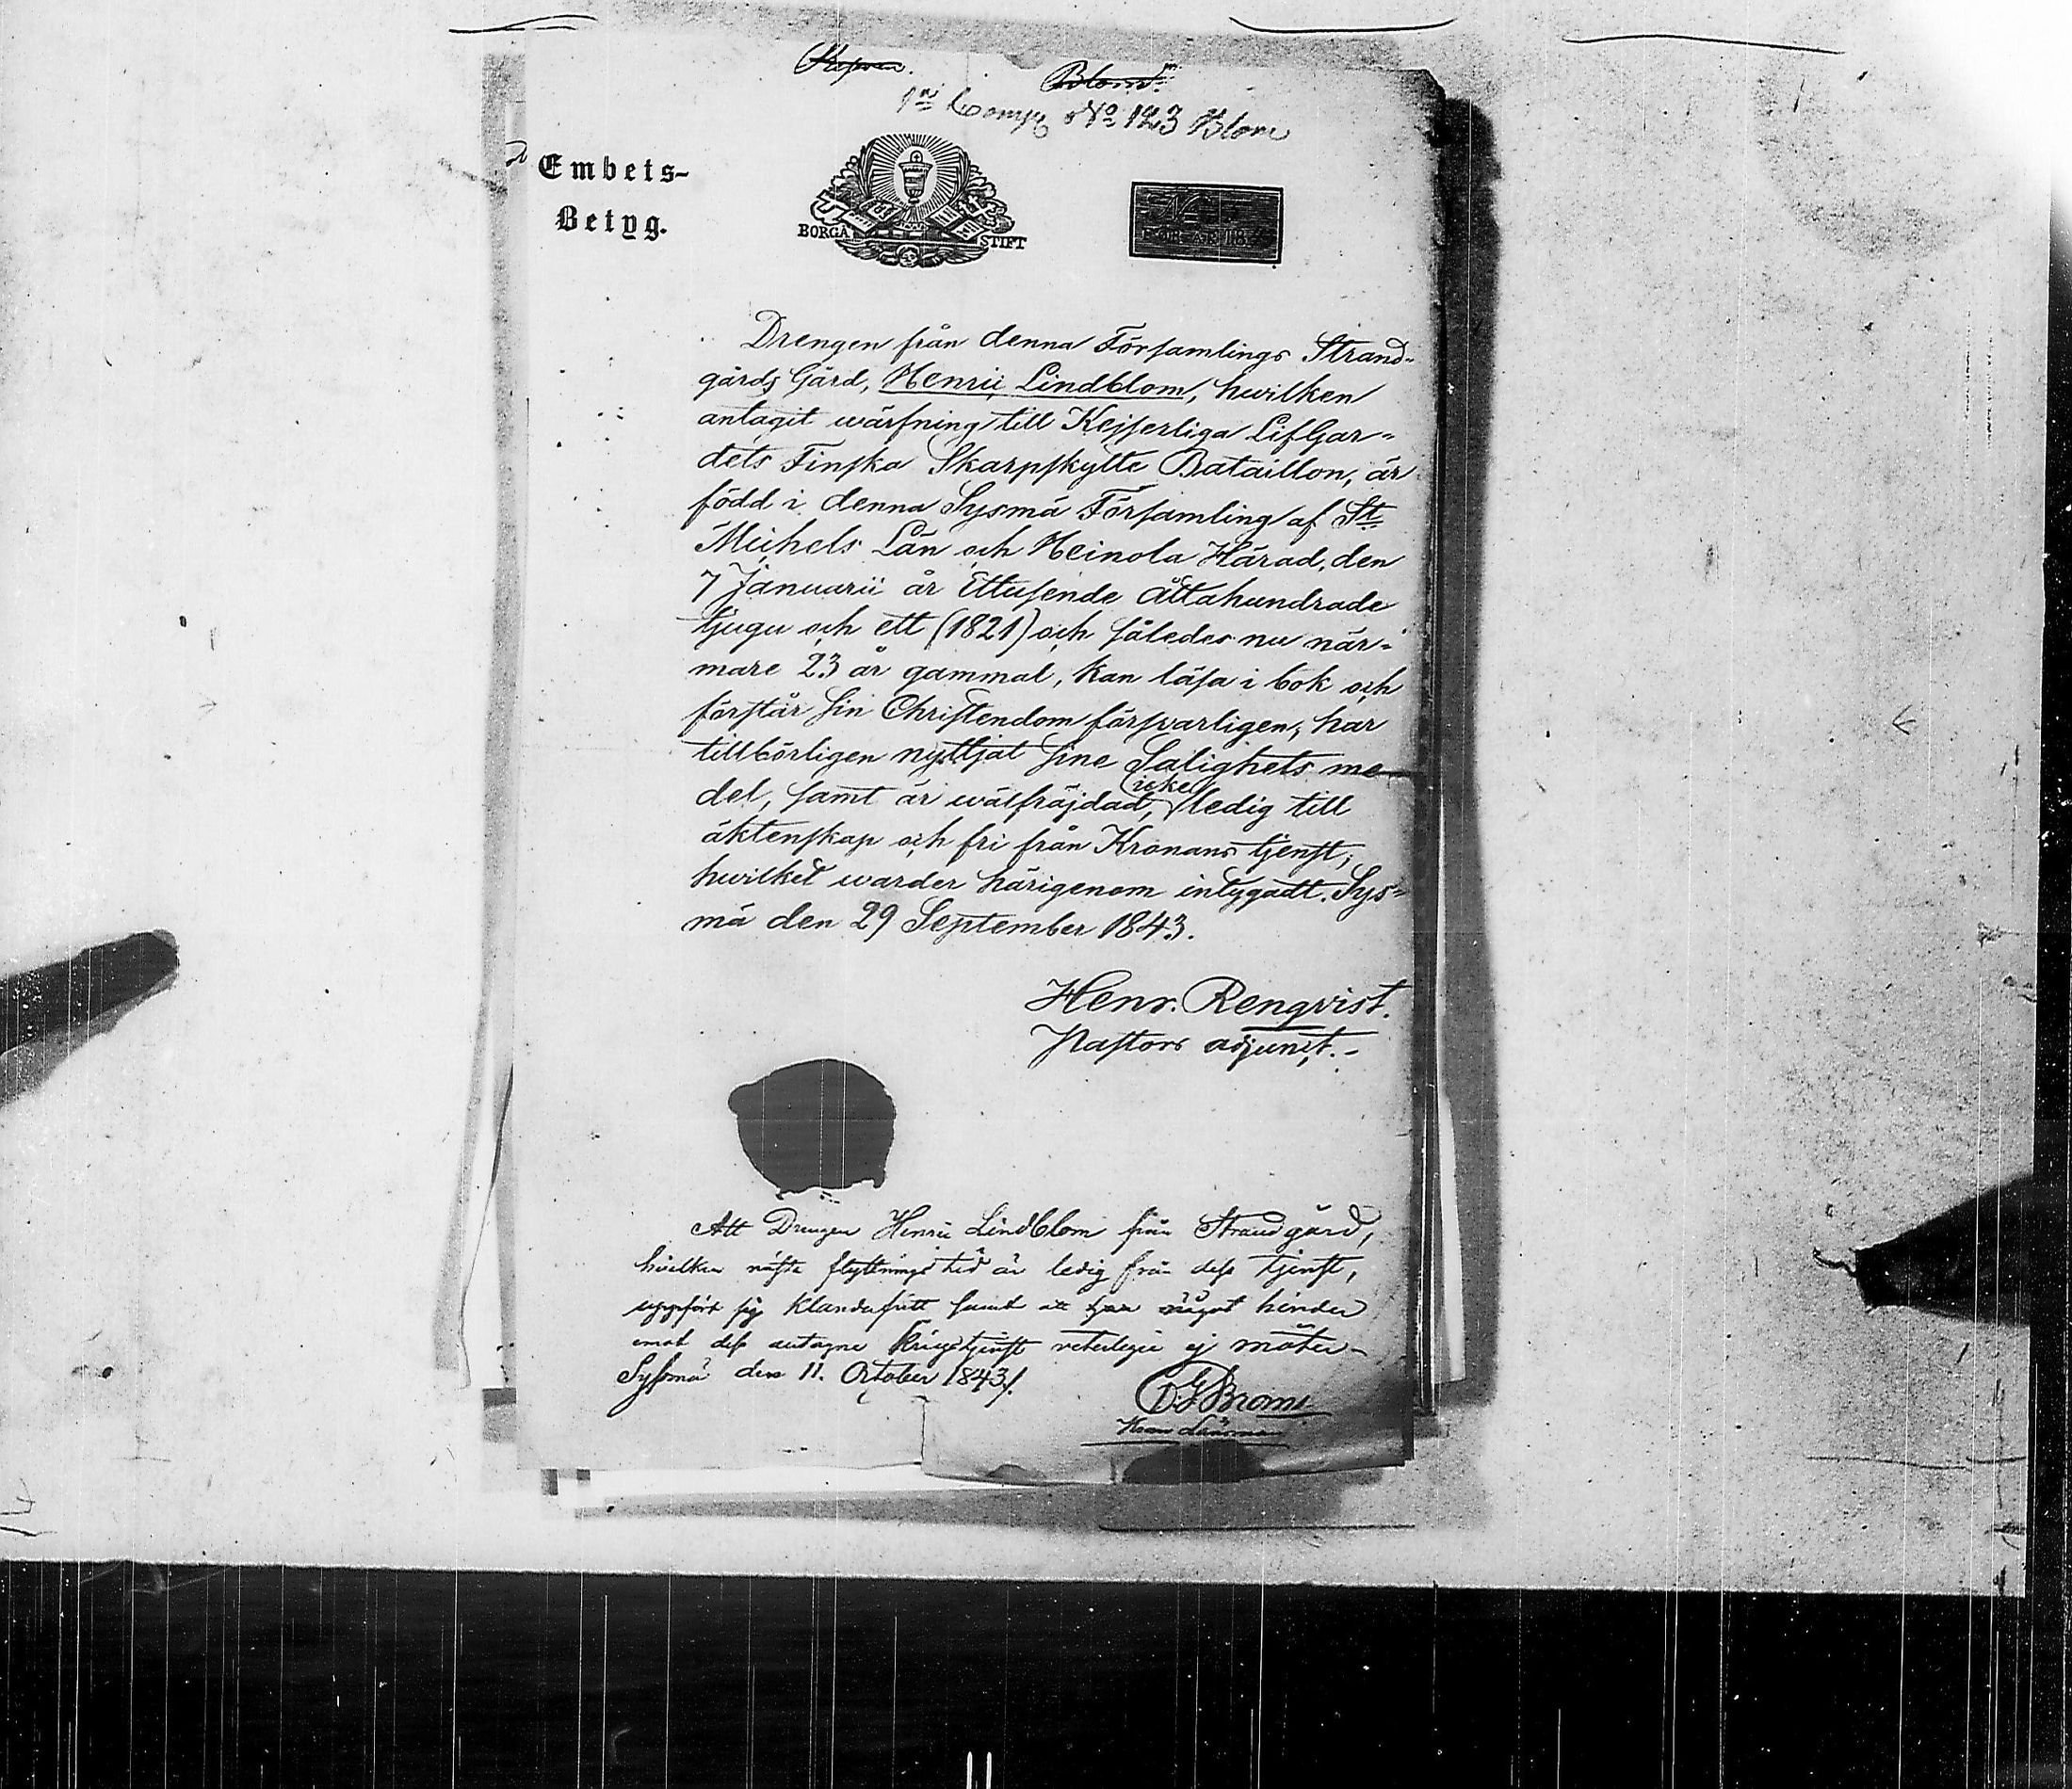 Blom.
1ra Comp. No 123 Blom
Embets-
Betyg.
BORGÅ STIFT
FÖR ÅR 184
Drengen från denna Församlings Strand-
gårds Gård, Henric Lindblom, hwilken
antagit wärfning till Kejserliga LifGar-
dets Finska Skarpskytte Bataillon, är
född i denna Sysmä Församling af St
Michels Län och Heinola Härad, den
7 Januarii år Ettusende åttahundrade
tjugu och ett (1821) och således nu när-
mare 23 år gammal, kan läsa i bok och
förstår sin Christendom försvarligen, har
tillbörligen nyttjat sine Salighets me-
del, samt är wälfräjdad, icke ledig till
äktenskap och fri från Kronans tjenst;
hwilket warder härigenom intygadt. Sys-
mä den 29 September 1843.
Henr. Renqvist.
Pastors adjunct.-
Att Drengen Henric Lindblom från Strandgård,
hvilken nästa flyttningstid är ledig från dess tjenst,
uppfört sig klanderfritt samt att något hinder
emot dess antagne Krigstjenst veterligen ej möter-
Sysmä den 11. October 1843.